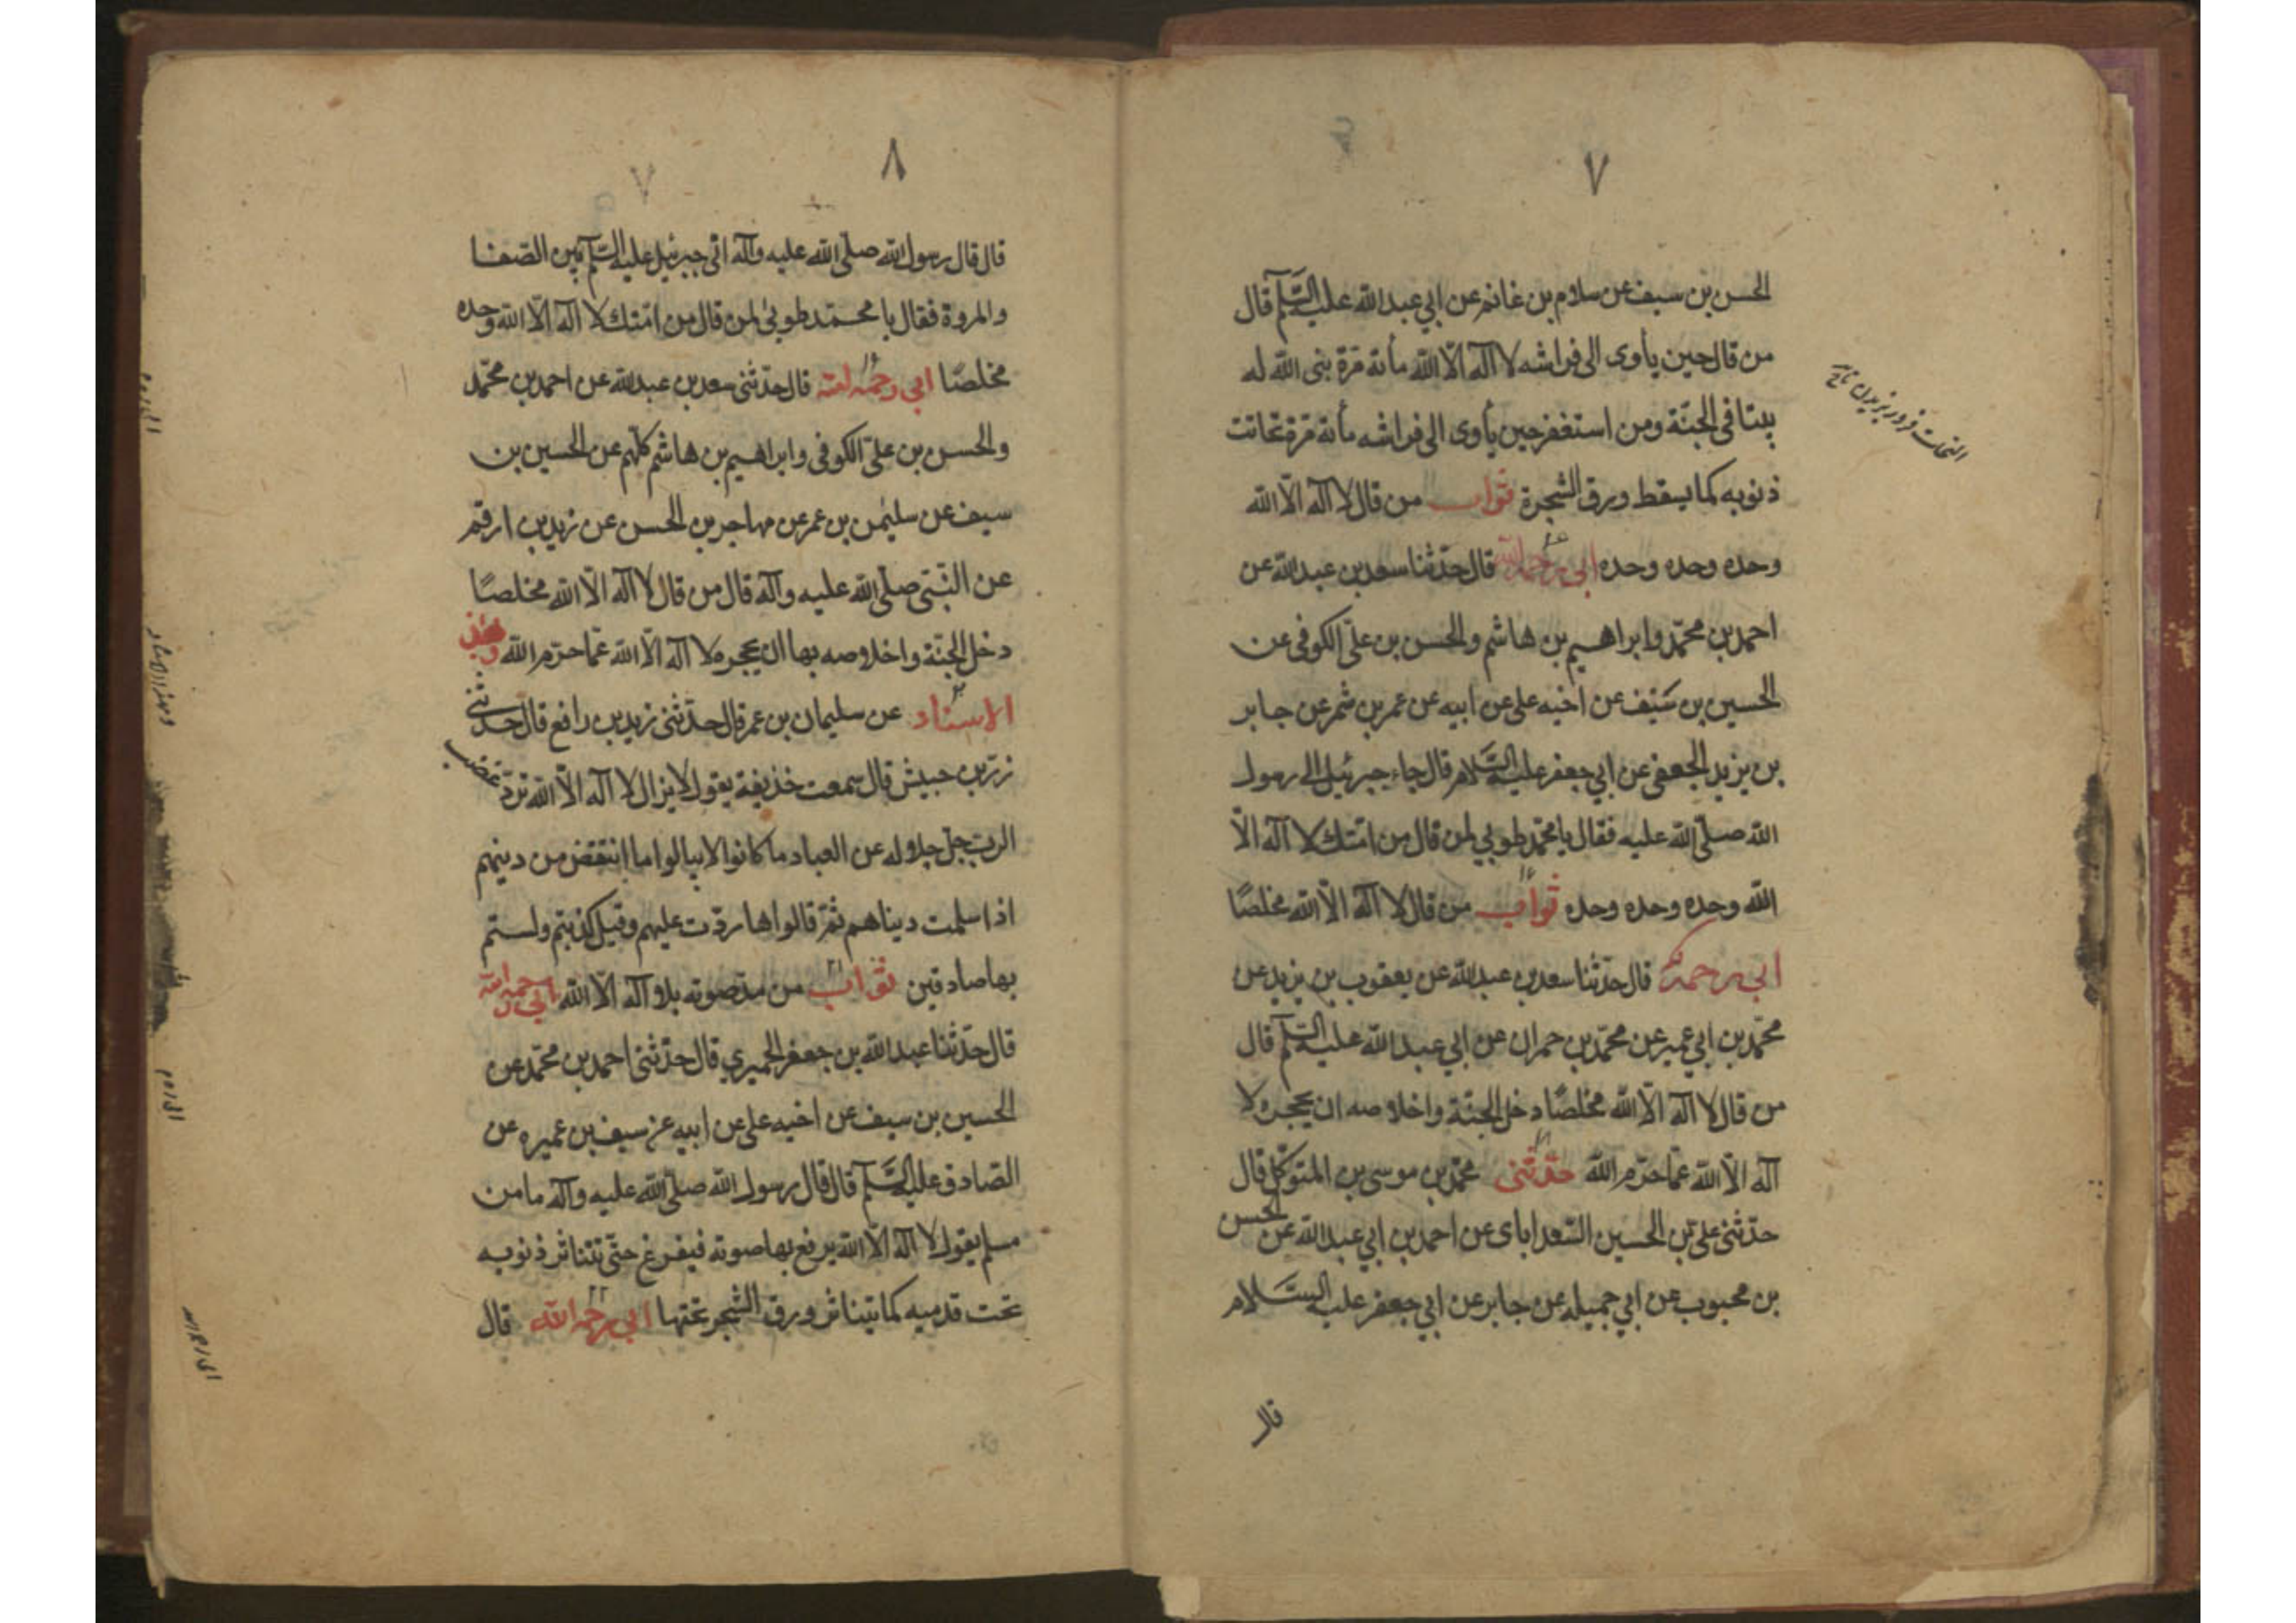 ٧
الحسن بن سيف عن سلام بن غانم عن ابي عبدالله عليه السّلم قال
من قال حين يأوى الى فراشه لا اله الّا الله مأته مرّة بنى الله له
بيتا فى الجنّة ومن استغفر حين يأوى الى فراشه مأته مرة تحاتت
ذنوبه كما يسقط ورق الشجرة ثواب من قال لا اله الّا الله
وحده وحده وحده ابي رحمه الله قال حدّثنا سعد بن عبدالله عن
احمد بن محمّد وابراهيم بن هاشم والحسن بن علىّ الكوفى عن
الحسين بن سَيف عن اخيه على عن ابيه عن عمر بن شمر عن جابر
بن يزيد الجعفى عن ابي جعفر عليه السَّلام قال جاء جبرئيل الى رسول
الله صلّى الله عليه فقال يا محمّد طوبي لمن قال من امّتك لا اله الّا
الله وحده وحده وحده ثواب من قال لا اله الّا الله مخلصًا
ابي رحمه قال حدّثنا سعد بن عبدالله عن يعقوب بن يزيد عن
محمّد بن ابي عمير عن محمّد بن حمران عن ابي عبدالله عليه السّلم قال
من قال لا اله الّا الله مخلصًا دخل الجنّة واخلاصه ان يحجره لا
اله الّا الله عمّا حرّم الله حدّثنى محمّد بن موسى بن المتوكّل قال
حدّثنى علىّ بن الحسين السّعدابادى عن احمد بن ابي عبدالله عن الحسن
بن محبوب عن ابي جميله عن جابر عن ابي جعفر عليه السَّلام
قال
٨
٧
قال قال رسول الله صلّى الله عليه وآله اتى جبرئيل عليه السّلم بين الصّفا
والمروة فقال يا محمّد طوبىٰ لمن قال من امّتك لا اله الّا الله وحده
مخلصًا ابي رحمه الله قال حدّثنى سعد بن عبدالله عن احمد بن محمّد
والحسن بن علىّ الكوفى وابراهيم بن هاشم كلّهم عن الحسين بن
سيف عن سليمٰن بن عمر عن مهاجر بن الحسن عن زيد بن ارقم
عن النّبىّ صلّى الله عليه وآله قال من قال لا اله الّا الله مخلصًا
دخل الجنّة واخلاصه بها ان يحجره لا اله الّا الله عمّا حرّم الله وبهذ
الاسناد عن سليمان بن عمر قال حدّثنى زيد بن رافع قال حدّثنى
زرّ بن حبيش قال سمعت خذيفة يقول لا يزال لا اله الّا الله تردّ غضب
الربّ جلّ جلاله عن العباد ما كانوا لا يبالوا ما انتقض من دينهم
اذا سلمت ديناهم ثمّ قالوا ها ردّت عليهم وقيل كذبتم ولستم
بها صادقين ثواب من مدّ صوته بلا اله الّا الله ابي رحمه الله
قال حدّثنا عبدالله بن جعفر الحميري قال حدّثنى احمد بن محمّد عن
الحسين بن سيف عن اخيه على عن ابيه عن سيف بن عميره عن
الصّادق عليه السَّلم قال قال رسول الله صلّى الله عليه وآله ما من
مسلم يقول لا اله الّا الله يرفع بها صوته فيفرغ حتّى تتناثر ذنوبه
تحت قدميه كما يتناثر ورق الشّجر تحتها ابي رحمه الله قال